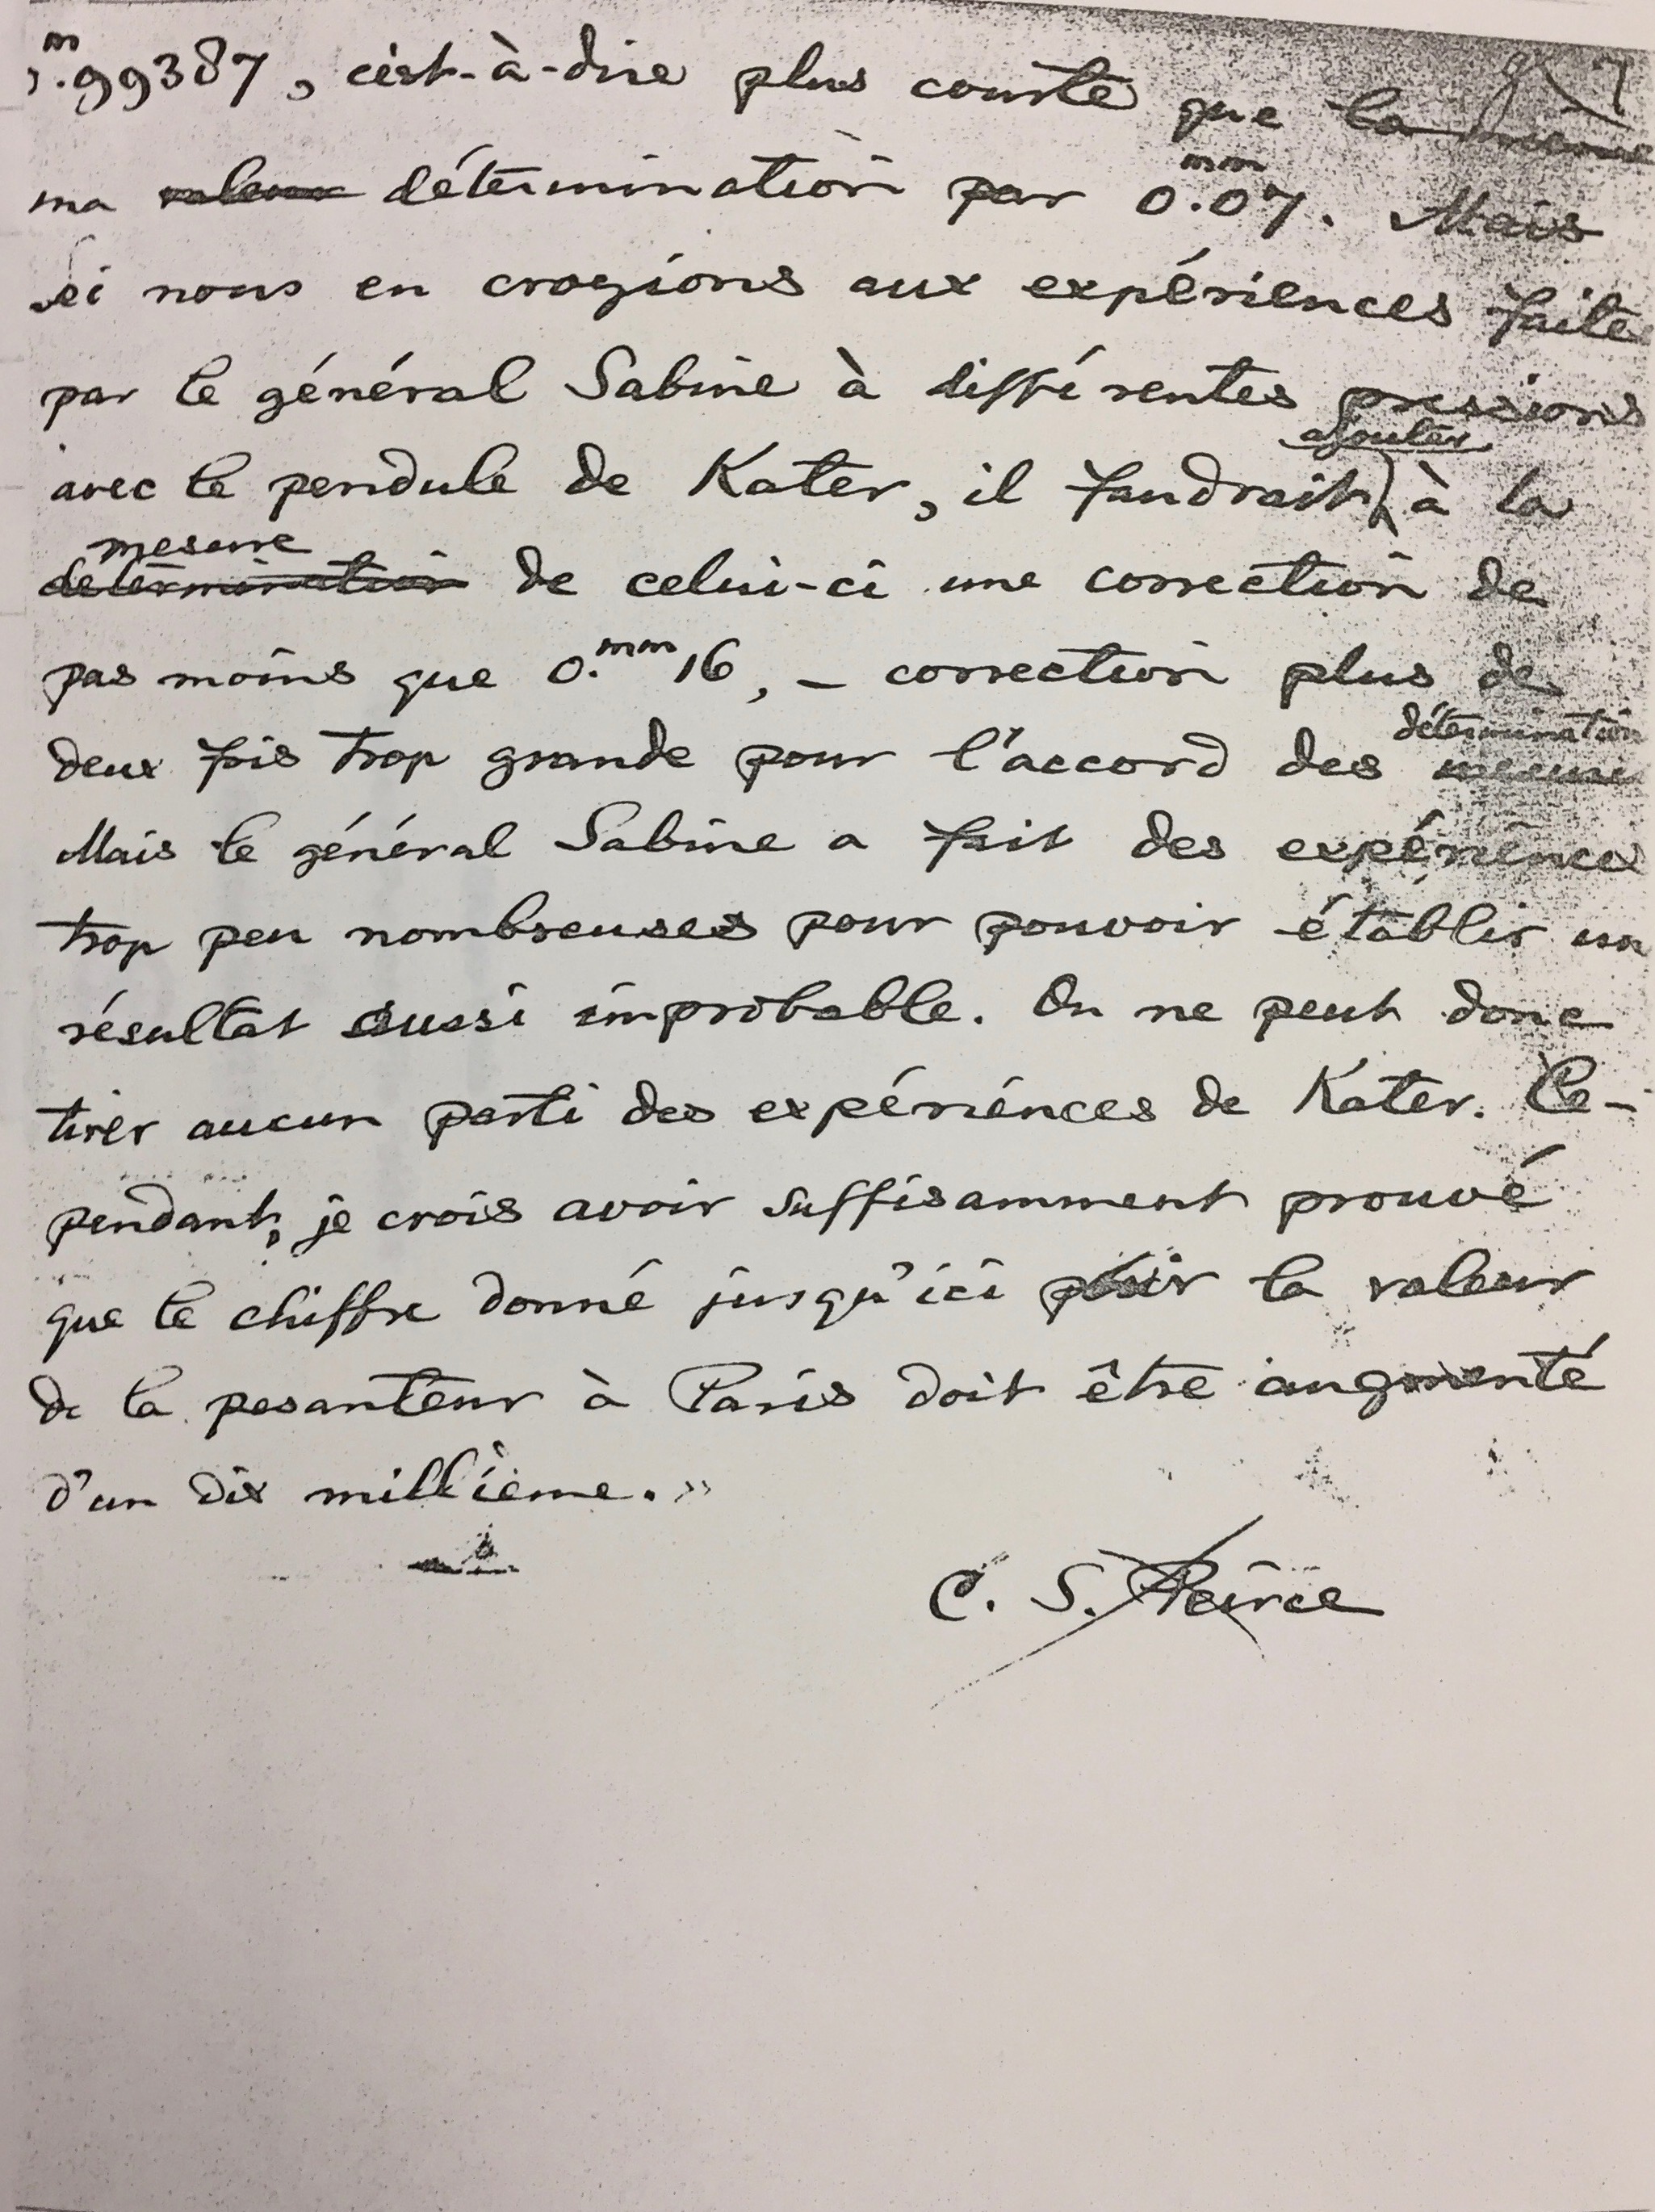 m
.99387, c'est-à-dire plus courte que la même
ma valeur détermination par 0.mm07. Mais
si nous en croyions aux expériences faites
par le général Sabine à différentes pressions
ajouter
avec le pendule de Kater, il faudrait à la
mesure
détermination de celui-ci une correction de
pas moins que 0.mm16, – correction plus de
détermination
deux fois trop grande pour l'accord des mesures
Mais le général Sabine a fait des expériences
trop peu nombreuses pour pouvoir établir un
résultat aussi improbable. On ne peut donc
tirer aucun parti des expériences de Kater. Ce-
pendant, je crois avoir suffisamment prouvé
que le chiffre donné jusqu'ici pour la valeur
de la pesanteur à Paris doit être augmenté
d'un dix millième.»
C. S. Peirce